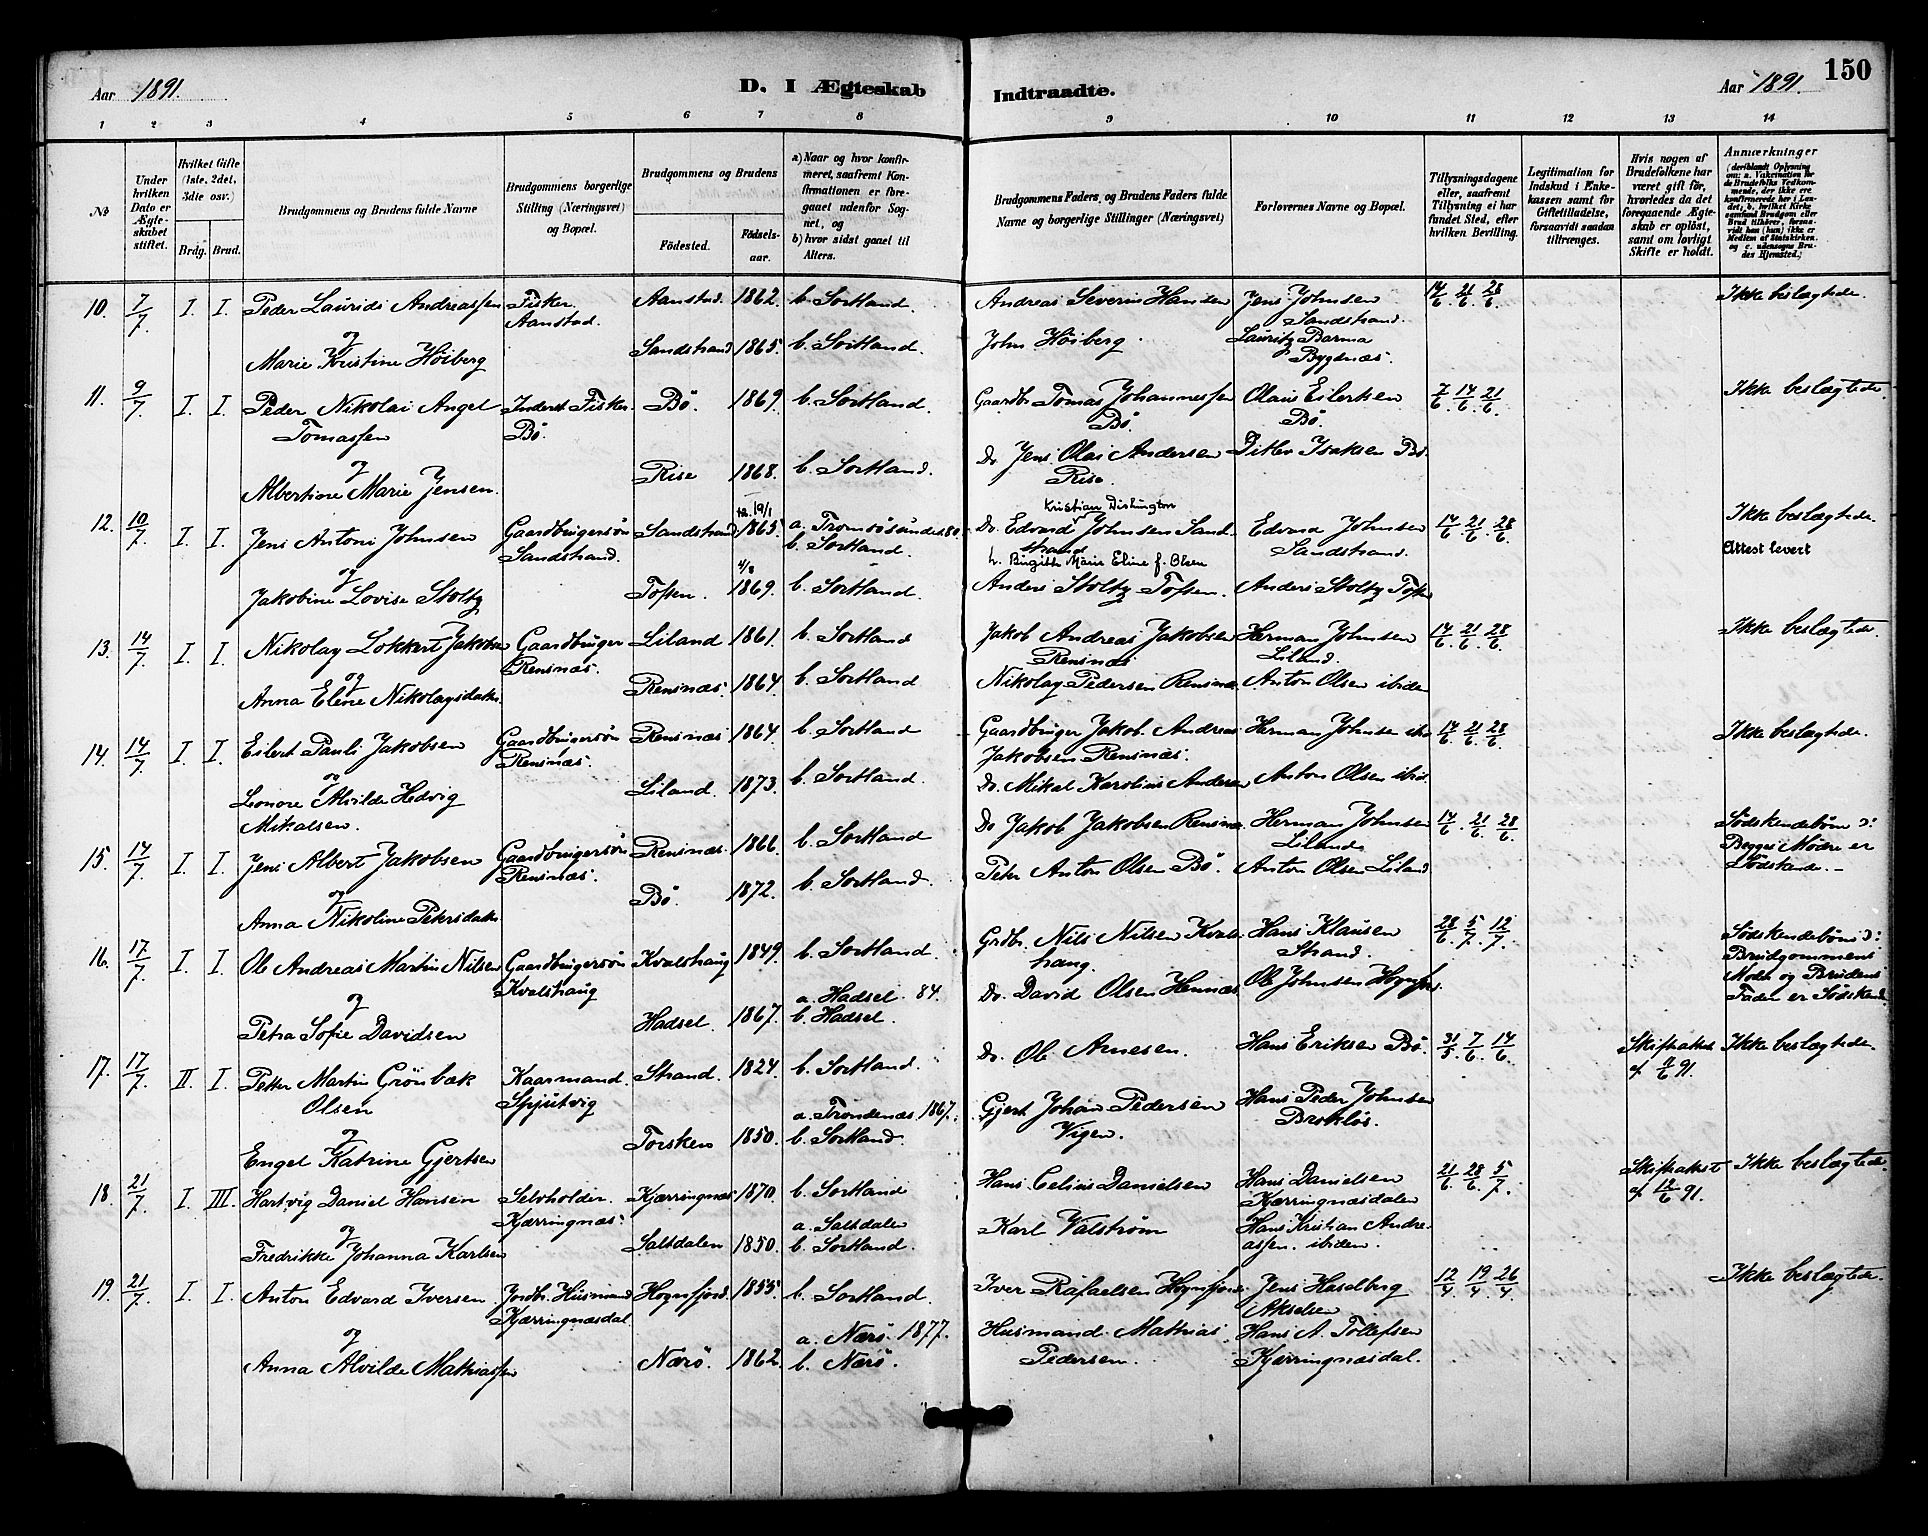 Aar 1891.
D. I Ægteskab Indtraadte.
Aar 1891.
150
1 2 3 4 5 6 7 8 9 10 11 12 13 14
No
Under hvilken Dato er Ægteskabet stiftet.
Hvilket Gifte (1ste, 2det, 3die osv.)
Brdg. Brud.
Brudgommens og Brudens fulde Navne
Brudgommens borgerlige Stilling (Næringsvei) og Bopæl.
Brudgommens og Brudens
Fødested.
Fødselsaar.
a) Naar og hvor konfirmeret, saafremt Konfirmationen er foregaaet udenfor Sognet, og
b) hvor sidst gaaet til Alters.
Brudgommens Faders og Brudens Faders fulde Navne og borgerlige Stillinger (Næringsvei)
Forlovernes Navne og Bopæl.
Tillysningsdagene eller, saafremt Tillysning ei har fundet Sted, efter hvilken Bevilling.
Legitimation for Indskud i Enkekassen samt for Giftetilladelse, forsaavidt saadan tiltrænges.
Hvis nogen af Brudefolkene har været gift før, hvorledes da det foregaaende Ægteskab er opløst, samt om lovligt Skifte er holdt.
Anmærkninger
(deriblandt Oplysning om: a. Vakcination for de Brudefolks Vedkommende, der ikke ere konfirmerede her i Landet; b. hvilket Kirkesamfund Brudgom eller Brud tilhører, forsaavidt han (hun) ikke er Medlem af Statskirken, og c. udensogns Brudes Hjemsted.)
10. 7/7 I. I. Peder Laurids Andreassen Fisker Aanstad. Aanstad. 1862. b. Sortland. Andreas Severin Hansen Jens Johnsen Sandstrand. 14/6. 21/6 28/6. Ikke beslægtede.
og
Marie Kristine Höiberg Sandstrand 1865. b. Sortland. John Höiberg. Lauritz Barma Bygdnæs.
11. 9/7 I. I. Peder Nikolai Angel Tomassen Inderst Fisker Bö. Bö. 1869. b. Sortland. Gaardbr. Tomas Johannessen Bö. Olaus Eilertsen Bö. 7/6 14/6 21/6. Ikke beslægtede.
og
Albertine Marie Jensen. Rise 1868. b. Sortland. Do. Jens Olai Andersen Rise. Ditlev Isaksen Bö.
12. 10/7 I. I. Jens Antoni Johnsen Gaardbrugersön Sandstrand. Sandstrand 19/1 1865. a. Tromsösundet 80. b. Sortland. Do. Edvard Kristian Diskington Johnsen Sandstrand Edvard Johnsen Sandstrand. 14/6. 21/6. 28/6 Ikke beslægtede.
h. Birgitte Marie Eline f. Olsen Attest levert
og
Jakobine Lovise Stoltz Toften. 4/8 1869. b. Sortland. Anders Stoltz Toften. Anders Stoltz Toften
13. 14/7 I. I. Nikolay Lokkert Jakobsen Gaardbruger Rensnæs. Liland 1861. b. Sortland Jakob Andreas Jakobsen Rensnæs Herman Johnsen Liland. 14/6. 21/6. 28/6. Ikke beslægtede.
og
Anna Elene Nikolaysdatter. Rensnæs. 1864. b. Sortland Nikolay Pedersen Rensnæs. Anton Olsen ibidem
14. 14/7 I. I. Eilert Pauli Jakobsen Gaardbrugersön Rensnæs. Rensnæs 1864. b. Sortland Gaardbruger Jakob Andreas Jakobsen Rensnæs. Herman Johnsen ibid. 14/6 21/6 28/6. Ikke beslægtede.
og
Leonore Alvilde Hedvig Mikalsen. Liland. 1873. b. Sortland. Do. Mikal Karolius Andersen Anton Olsen ibid.
15. 14/7 I. I. Jens Albert Jakobsen Gaardbrugersön Rensnæs. Rensnæs. 1866. b. Sortland Do Jakob Jakobsen Rensnæs. Herman Johnsen Liland. 14/6. 21/6 28/6. Södskendebörn ɔ: Begges Mödre er Södskende.
og
Anna Nikoline Petersdatter Bö. 1872. b. Sortland. Peter Anton Olsen Bö. Anton Olsen Liland
16. 17/7 I. I. Ole Andreas Martin Nilsen Gaardbrugersön Kvalshaug Kvalshaug 1849. b. Sortland. Grdbr. Nils Nilsen Kvalshaug. Hans Klausen Strand. 28/6 5/7 12/7. Södskendebörn ɔ: Brudgommens Moder og Brudens Fader er Södskende
og
Petra Sofie Davidsen Hadsel. 1867. a. Hadsel. 84. b. Hadsel. Do. David Olsen Hennæs. Ole Johnsen Hognfjord.
17. 17/7 II. I. Petter Martin Grönbæk Olsen Kaarmand. Spjutvig Strand. 1824. b. Sortland. Do. Ole Arnesen. Hans Eriksen Bö. 31/5. 7/6. 14/6. Skifteattest af 9/6 91. Ikke beslægtede.
og
Engel Katrine Gjertsen Torsken 1850. a. Trondenæs 1867. b. Sortland. Gjert Johan Pedersen Vigen. Hans Peder Johnsen Broklös.
18. 21/7 I. III. Hartvig Daniel Hansen Selvholder. Kjærringnæs. Kjærringnæs 1870. b. Sortland Hans Celius Danielsen Hans Danielsen Kjærringnæsdalen 21/6. 28/6. 5/7. Skifteattest af 12/6 91. Ikke beslægtede
og
Fredrikke Johanna Karlsen Saltdalen 1850. a. Saltdalen b. Sortland. Karl Valström Hans Kristian Andreassen. ibidem.
19. 21/7. I. I. Anton Edvard Iversen Jordbr. Husmand Kjærringnæsdal Hognfjord. 1855. b. Sortland. Iver Rafaelsen Hognfjord Jens Haselberg Akselsen 12/4 19/4. 26/4 Ikke beslægtede.
og
Anna Alvilde Mathiassen Nærö. 1862. a. Nærö. 1877. b. Nærö. Husmand Mathias Pedersen. Hans A. Tollefsen Kjærringnæsdal.